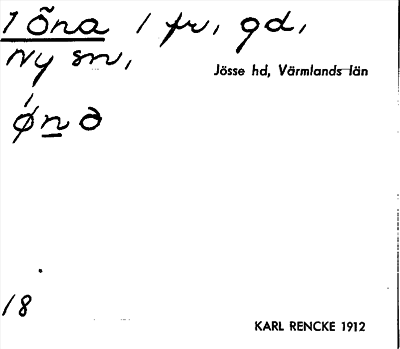 1 Õna / fr, gd,
Ny sn,
Jösse hd, Värmlands län
ǿn̲ə
18
KARL RENCKE 1912